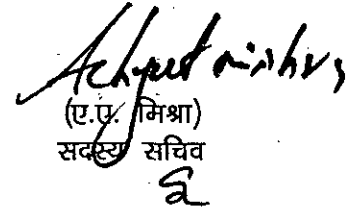 Achyut mishra
(ए.ए. मिश्रा)
सदस्य सचिव